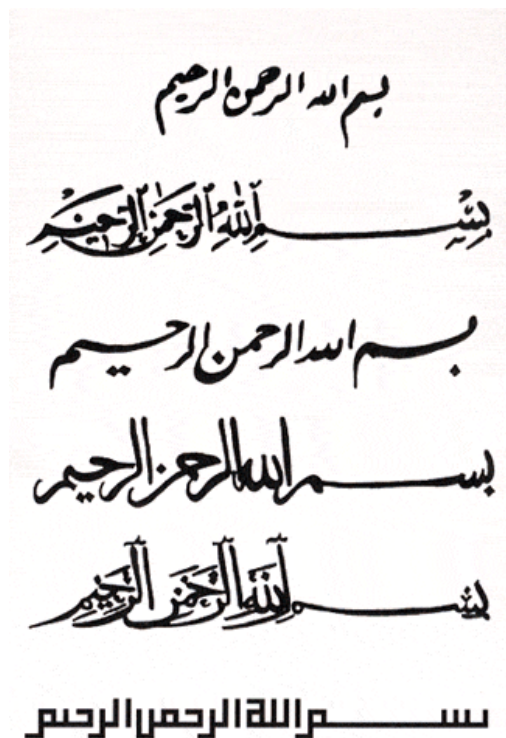 بسم الله الرحمن الرحيم
بِسْمِ اللهِ الرَّحْمَٰنِ الرَّحِيْمِ
بسم الله الرحمن الرحيم
بسم الله الرحمن الرحيم
بسم الله الرحمن الرحيم
بسم الله الرحمن الرحيم